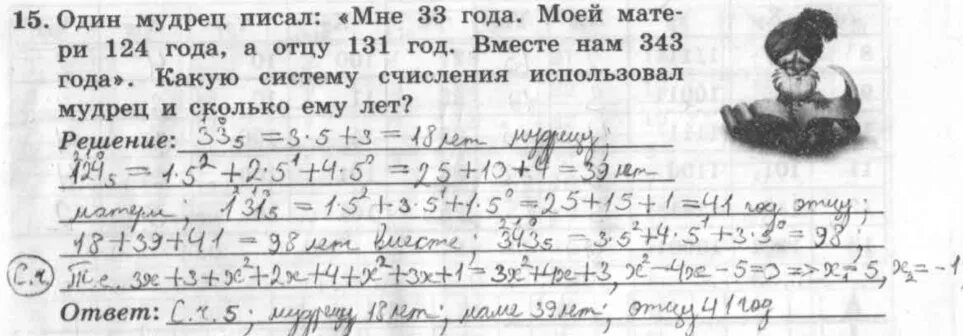 15. Один мудрец писал: «Мне 33 года. Моей мате-
ри 124 года, а отцу 131 год. Вместе нам 343
года». Какую систему счисления использовал
мудрец и сколько ему лет?
Решение: 33₅ = 3·5+3 = 18 лет мудрецу;
124₅ = 1·5²+2·5¹+4·5⁰ = 25+10+4 = 39 лет
матери; 131₅ = 1·5²+3·5¹+1·5⁰ = 25+15+1 = 41 год отцу;
18+39+41 = 98 лет вместе; 343₅ = 3·5²+4·5¹+3·5⁰ = 98;
С.ч. т.е. 3x+3+x²+2x+4+x²+3x+1 = 3x²+4x+3, x²-4x-5=0 => x₁=5, x₂=-1
Ответ: С.ч. 5; мудрецу 18 лет; маме 39 лет; отцу 41 год